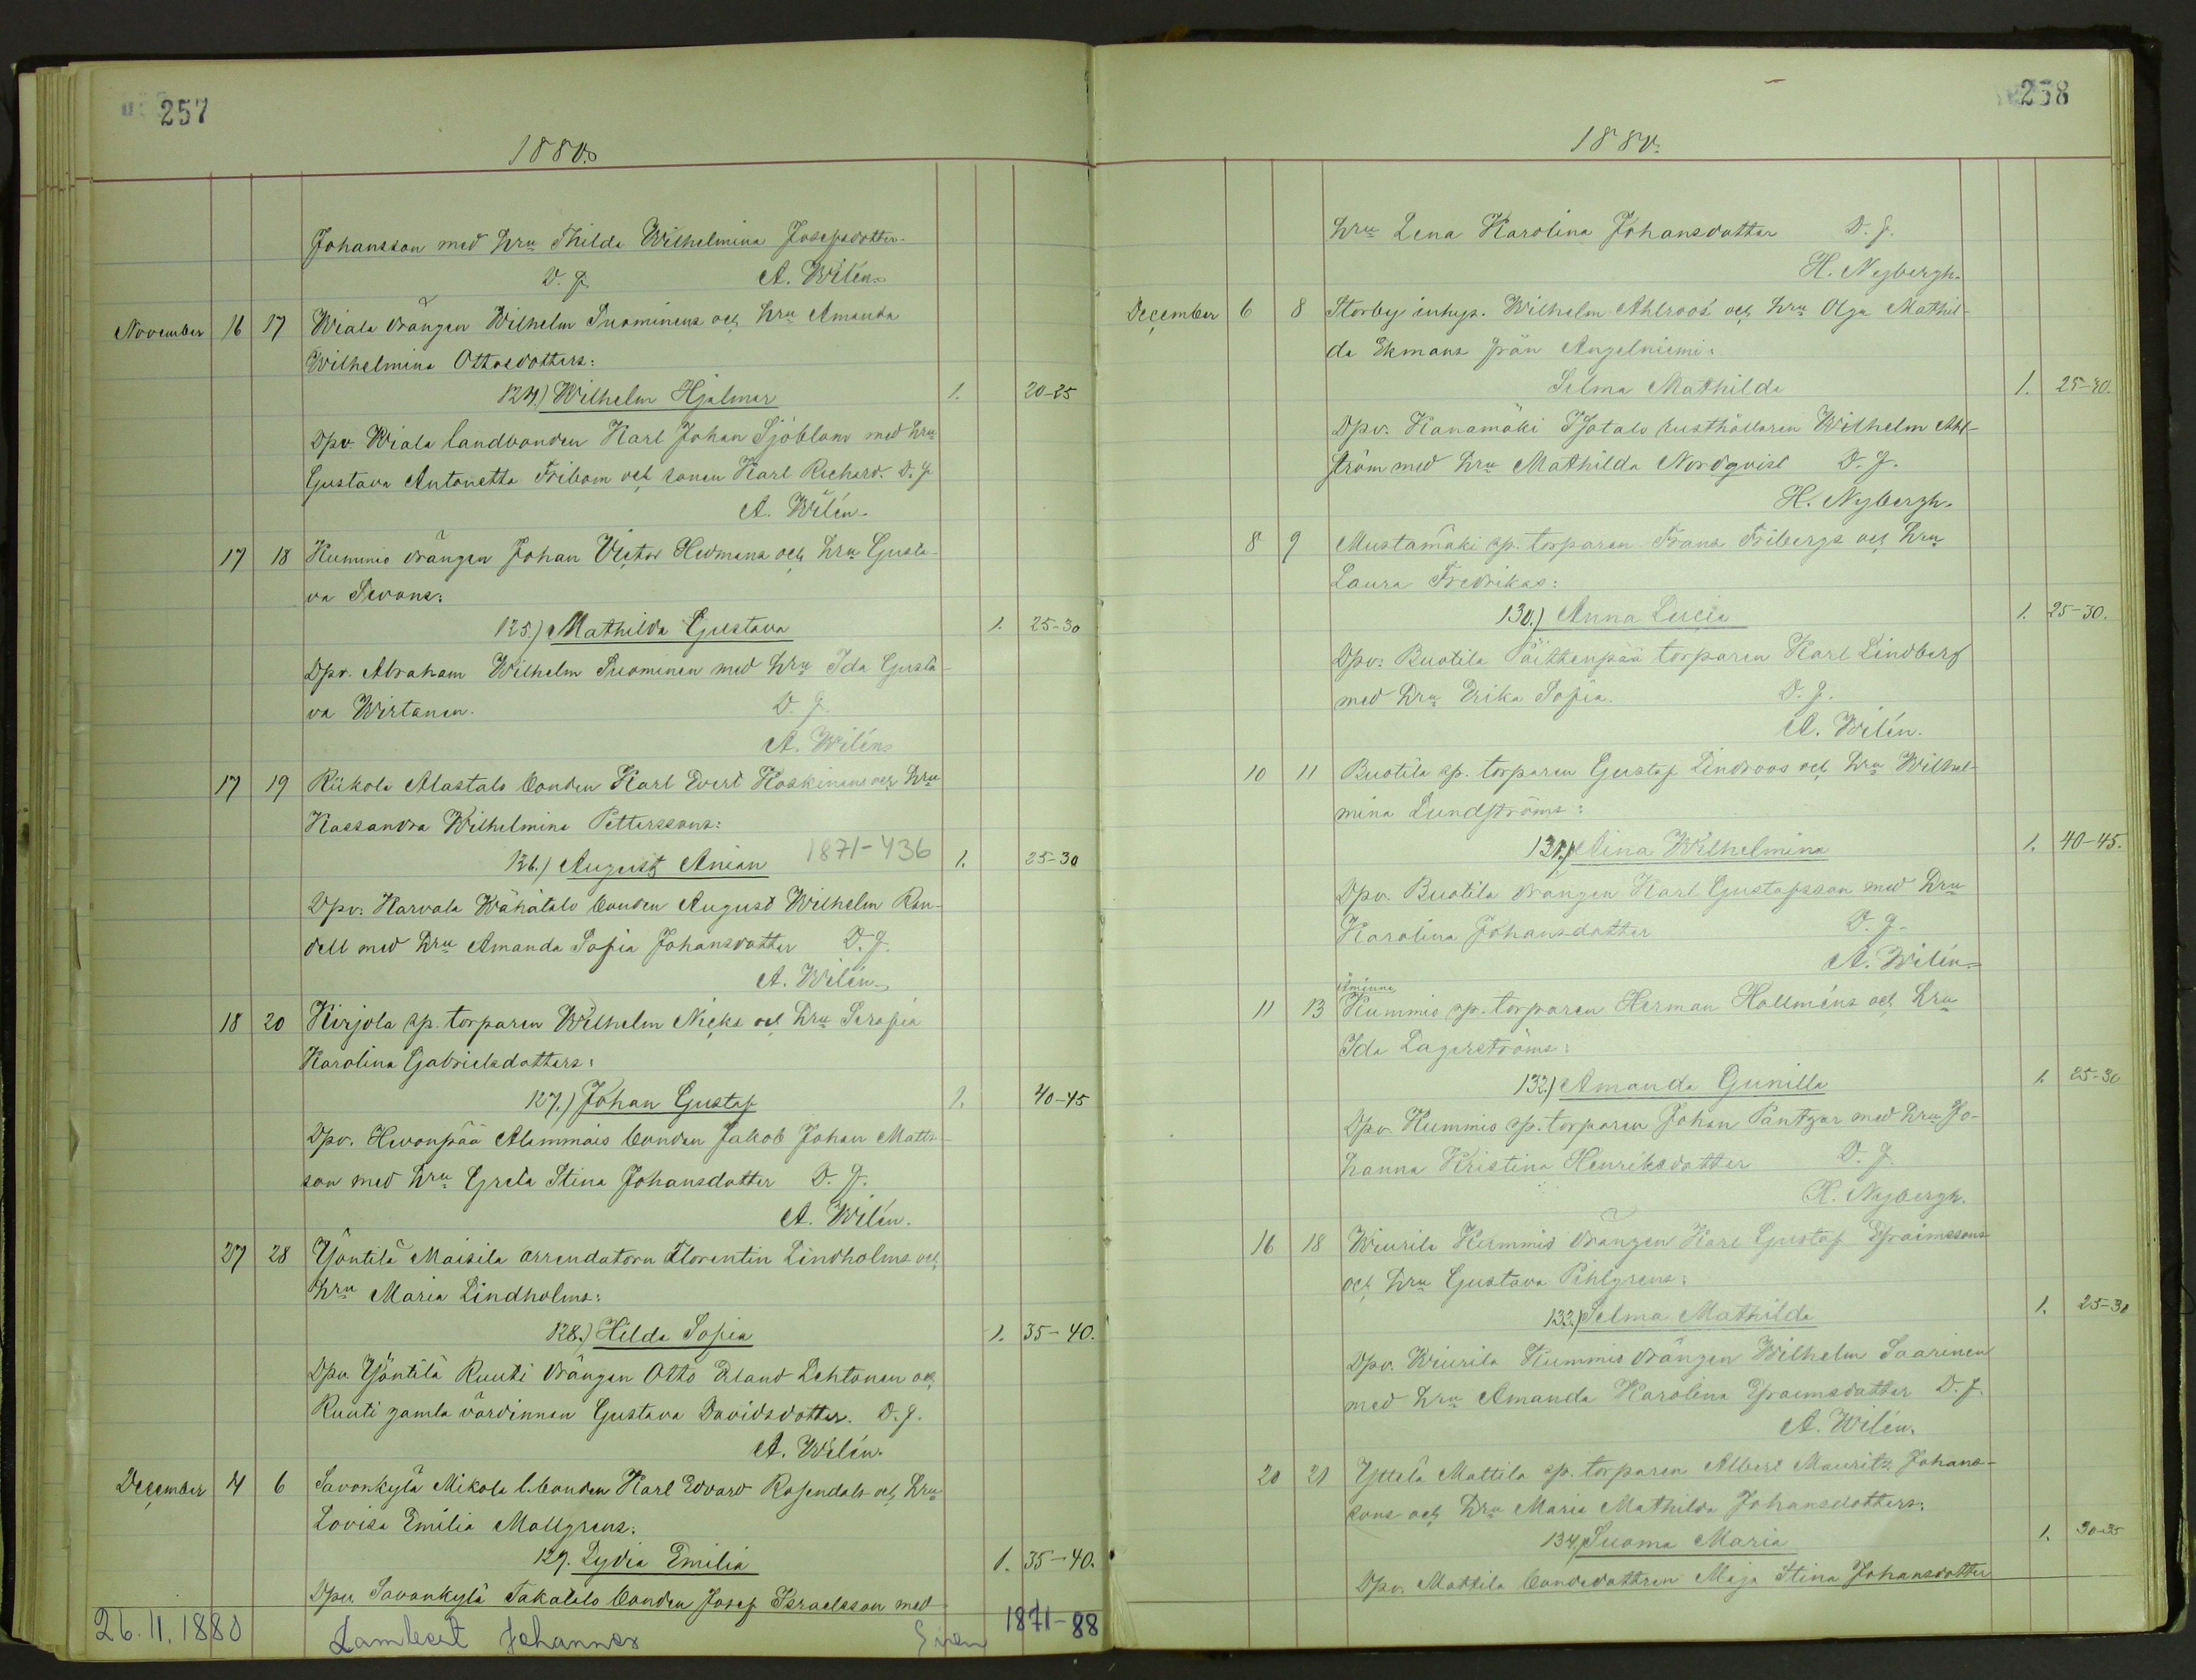 257
1880.
Johansson med hru Thilda Wilhelmina Josefsdotter.
D. J. A. Wilén.
November 16 17 Wiala drängen Wilhelm Suominens och hru Amanda
Wilhelmina Ottosdotters:
124.) Wilhelm Hjalmar 1. 20-25
Dpv. Wiala landbonden Karl Johan Sjöblom med hru
Gustava Antonetta Fribom och sonen Karl Richard. D. J.
A. Wilén.
17 18 Kummio drängen Johan Victor Hedmans och hru Gusta-
va Sevons:
125.) Mathilda Gustava 1. 25-30
Dpv. Abraham Wilhelm Suominen med hru Ida Gusta-
va Wirtanen. D. J.
A. Wilén.
17 19 Riikola Alastalo bonden Karl Evert Koskinens och hru
Kassandra Wilhelmina Petterssons:
126.) August Anian 1871-436 1. 25-30
Dpv. Karvala Wähätalo bonden August Wilhelm Ran-
dell med hru Amanda Sofia Johansdotter D. J.
A. Wilén.
18 20 Kirjola sp. torparen Wilhelm Nicks och hru Serafia
Karolina Gabrielsdotters:
127.) Johan Gustaf 1. 40-45
Dpv. Hevonpää Alammais bonden Jakob Johan Matts-
son med hru Greta Stina Johansdotter D. J.
A. Wilén.
27 28 Yöntilä Maisila arrendatorn Florentin Lindholms och
hru Maria Lindholms:
128.) Hilda Sofia 1. 35-40.
Dpv. Yöntilä Ruuti drängen Otto Erland Lehtonen och
Ruuti gamla värdinnan Gustava Davidsdotter. D. J.
A. Wilén.
December 4 6 Savonkylä Mikola l.bonden Karl Edvard Rosendals och hru
Lovisa Emilia Mallgrens:
129. Lydia Emilia 1. 35-40.
Dpv. Savonkylä Takatalo bonden Josef Israelsson med
26.11.1880 Lambert Johannes 1871-88
258
1880.
hru Lena Karolina Johansdotter D. J.
H. Nybergh.
December 6 8 Storby inhys. Wilhelm Ahlroos' och hru Olga Mathil-
da Ekmans från Angelniemi:
Selma Mathilda 1. 25-30.
Dpv. Kanamäki Isotalo rusthållaren Wilhelm Ahl-
ström med hru Mathilda Nordqvist D. J.
H. Nybergh.
8 9 Mustamäki sp. torparen Frans Fribergs och hru
Laura Fredrikas:
130.) Anna Lucia 1. 25-30.
Dpv. Buotila Päittenpää torparen Karl Lindberg
med hru Erika Sofia. D. J.
A. Wilén.
10 11 Buotila sp. torparen Gustaf Lindroos och hru Wilhel-
mina Lundströms:
131.) Aina Wilhelmina 1. 40-45.
Dpv. Buotila drängen Karl Gustafsson med hru
Karolina Johansdotter D. J.
A. Wilén.
Åminne
11 13 Kummio sp. torparen Herman Hallméns och hru
Ida Lagerströms:
132.) Amanda Gunilla 1. 25-30
Dpv. Kummio sp. torparen Johan Pantzar med hru Jo-
hanna Kristina Henriksdotter D. J.
H. Nybergh.
16 18 Wiurila Kummio drängen Karl Gustaf Efraimssons
och hru Gustava Pihlgrens:
133.) Selma Mathilda 1. 25-30
Dpv. Wiurila Kummio drängen Wilhelm Saarinen
med hru Amanda Karolina Efraimsdotter D. J.
A. Wilén.
20 21 Yttelä Mattila sp. torparen Albert Maurits Johans-
sons och hru Maria Mathilda Johansdotters:
134.) Suoma Maria 1. 30-35
Dpv. Mattila bondedottren Maja Stina Johansdotter